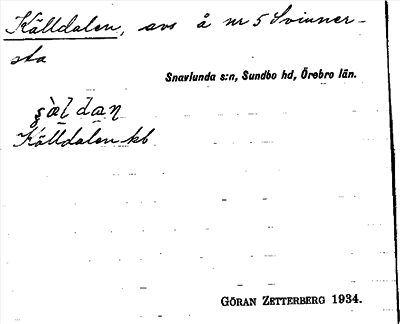 Källdalen, avs å nr 5 Svinner-
sta
Snavlunda s:n, Sundbo hd, Örebro län.
Källdalen kb
GÖRAN ZETTERBERG 1934.